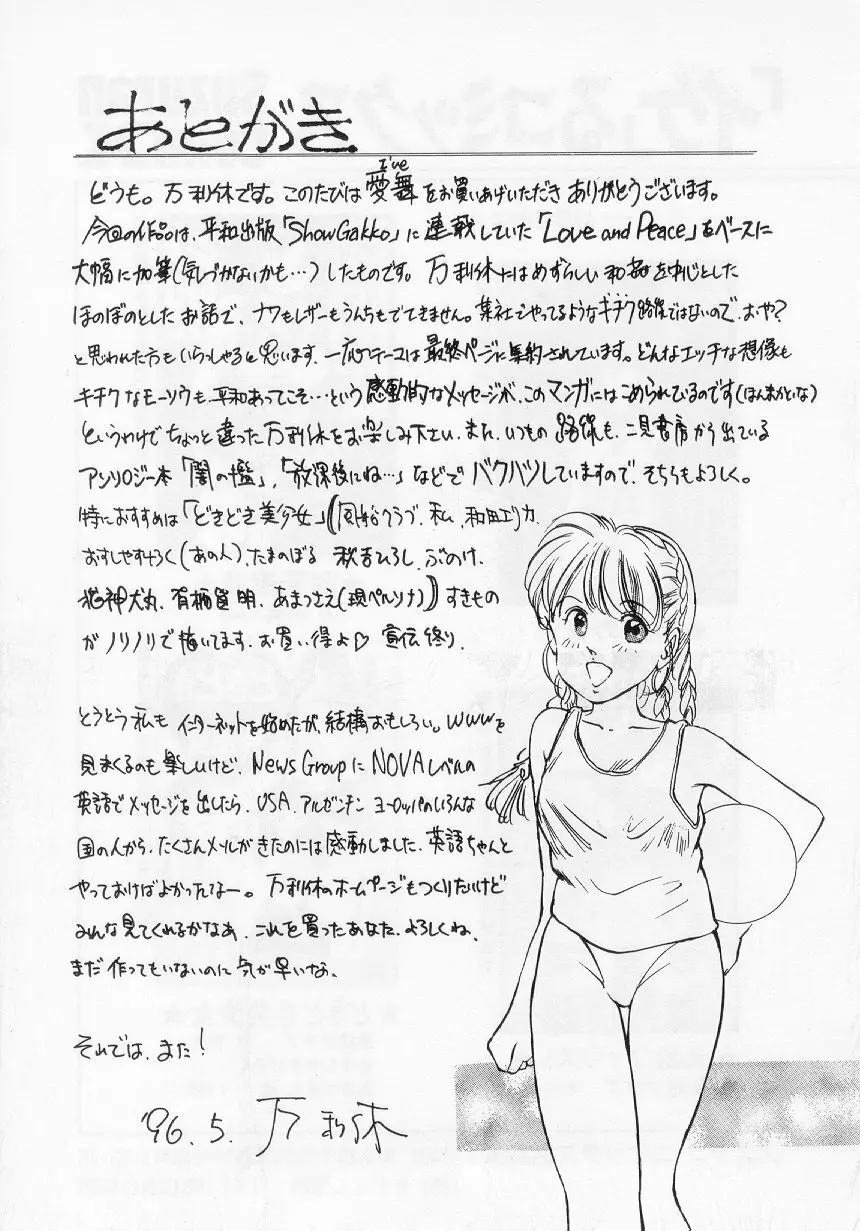 あとがき
どうも。万利休です。このたびは愛舞をお買いあげいただきありがとうございます。
I've
今回の作品は、平和出版「Show Gakko」に連載していた「Love and Peace」をベースに
大幅に加筆(気づかないかも…)したものです。万利休にはめずらしい和姦を中心とした
ほのぼのとしたお話で、ナワもレザーもうんちもでてきません。某社でやってるようなキチク路線ではないので、おや?
と思われた方もいらっしゃると思います。一応のテーマは最終ページに集約されています。どんなエッチな想像も
キチクなモーソウも、平和あってこそ…という感動的なメッセージが、このマンガにはこめられているのです(ほんまかいな)
というわけでちょっと違った万利休をお楽しみ下さい。また、いつもの路線も、二見書房から出ている
アンソロジー本「闇の檻」,「放課後にね…」などでバクハツしていますので、そちらもよろしく。
特におすすめは「どきどき美少女」(風船クラブ、私、和田エリカ、
おすしやすけろく(あの人)、たまのぼる 秋吉ひろし、ぶのけ、
犬丸、 あまっさえ(現ペルソナ))すきもの
がノリノリで描いてます。お買い得よ♡ 宣伝終り。
とうとう私もインターネットを始めたが、結構おもしろい。WWWを
見まくるのも楽しいけど、News GroupにNOVAレベルの
英語でメッセージを出したら、USA、アルゼンチン ヨーロッパのいろんな
国の人から、たくさんメールがきたのには感動しました。英語ちゃんと
やっておけばよかったなー。万利休のホームページもつくりたいけど
みんな見てくれるかなあ。これを買ったあなた、よろしくね。
まだ作ってもいないのに気が早いな。
それでは、また!
'96.5. 万利休